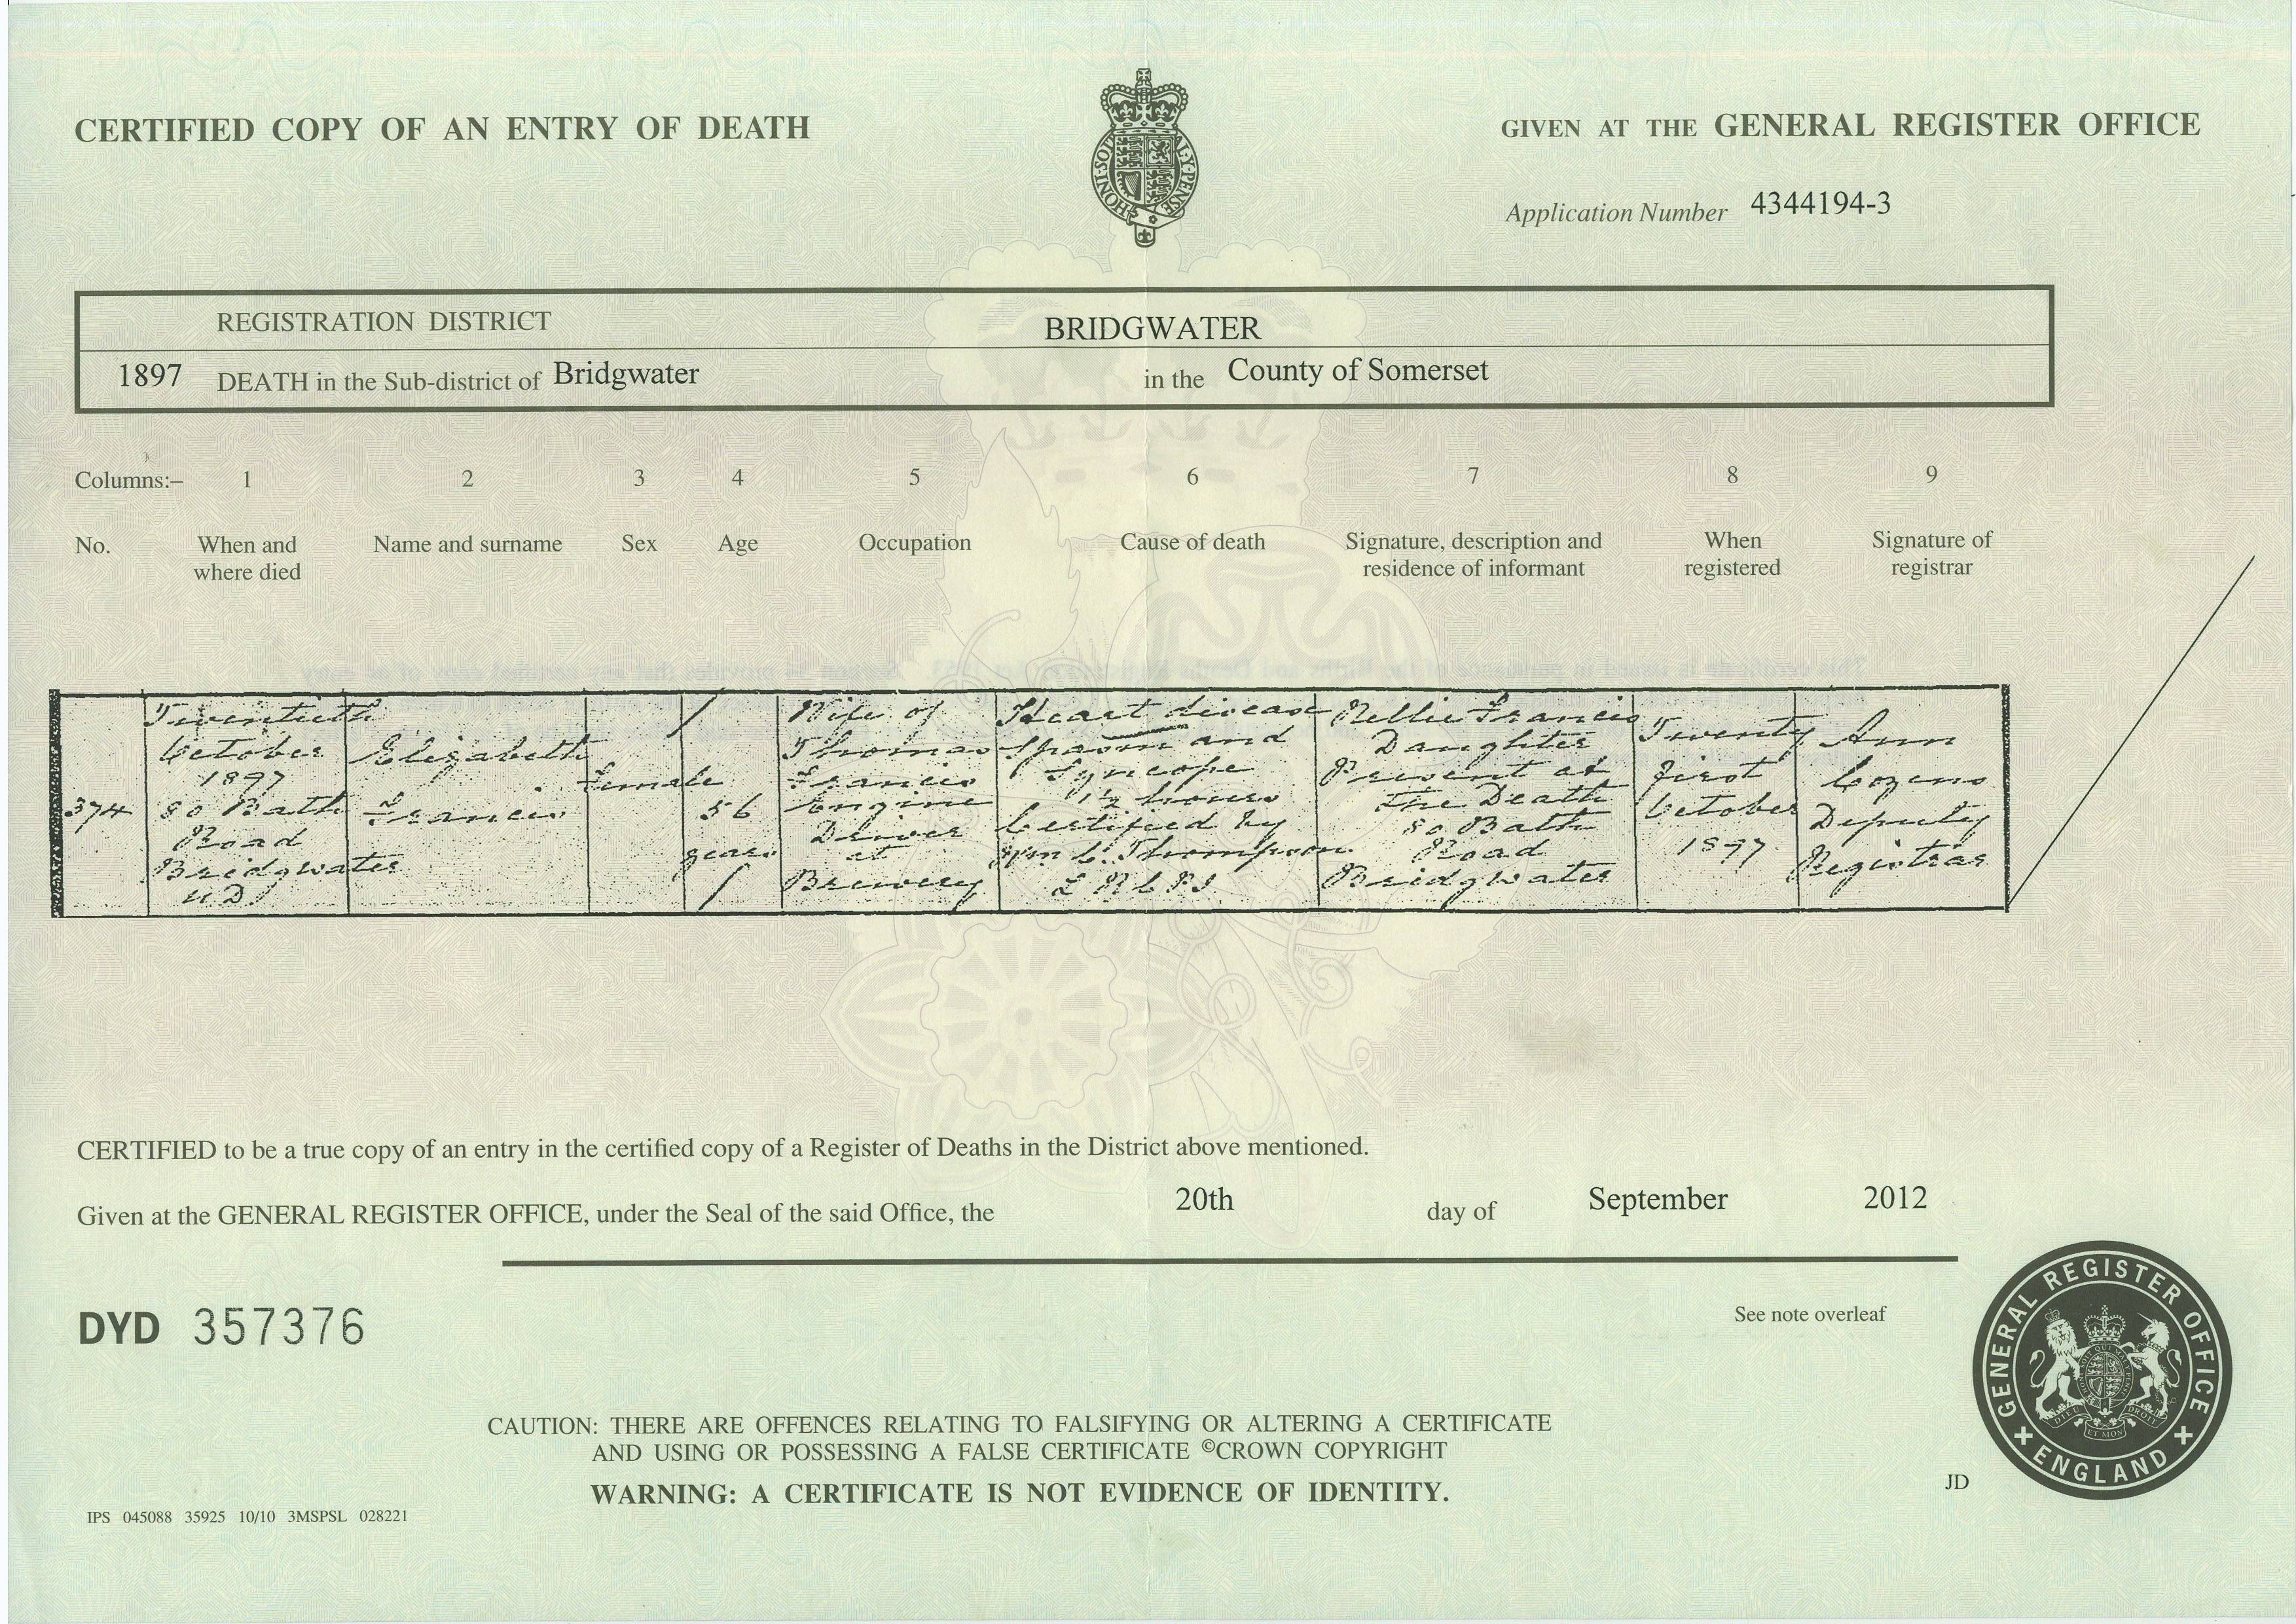 CERTIFIED COPY OF AN ENTRY OF DEATH
GIVEN AT THE GENERAL REGISTER OFFICE
HONI·SOI
AL·Y·PENSE
Application Number 4344194-3
REGISTRATION DISTRICT BRIDGWATER
1897 DEATH in the Sub-district of Bridgwater in the County of Somerset
Columns:– 1 2 3 4 5 6 7 8 9
No.
When and
where died
Name and surname
Sex
Age
Occupation
Cause of death
Signature, description and
residence of informant
When
registered
Signature of
registrar
374
Twentieth
October
1897
80 Bath
Road
Bridgwater
U D
Elizabeth
Francis
Female
56
years
Wife of
Thomas
Francis
Engine
Driver
at
Brewery
Heart disease
Spasm and
Syncope
1½ hours
Certified by
Wm C. Thompson
L R C P S
Nellie Francis
Daughter
Present at
the Death
80 Bath
Road
Bridgwater
Twenty
first
October
1897
Ann
Cozens
Deputy
Registrar
CERTIFIED to be a true copy of an entry in the certified copy of a Register of Deaths in the District above mentioned.
Given at the GENERAL REGISTER OFFICE, under the Seal of the said Office, the 20th day of September 2012
DYD 357376
See note overleaf
GENERAL REGISTER OFFICE
ENGLAND
CAUTION: THERE ARE OFFENCES RELATING TO FALSIFYING OR ALTERING A CERTIFICATE
AND USING OR POSSESSING A FALSE CERTIFICATE ©CROWN COPYRIGHT
WARNING: A CERTIFICATE IS NOT EVIDENCE OF IDENTITY.
JD
IPS 045088 35925 10/10 3MSPSL 028221